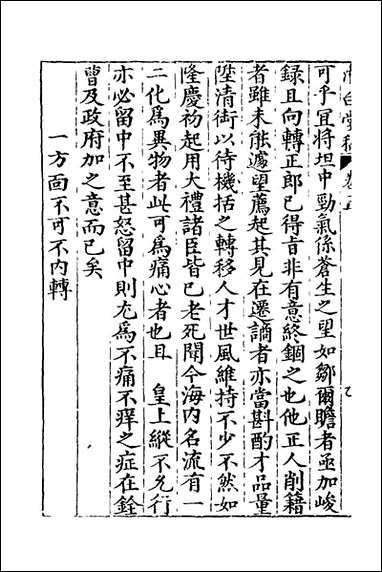 可乎冝將坦中勁氣係蒼生之望如鄒爾瞻者亟加峻
録且向轉正郎已得旨非有意終錮之也他正人削籍
者雖未能遽望薦起其見在遷謫者亦當斟酌才品量
陞清街以待機括之轉移人才世風維持不少不然如
隆慶初起用大禮諸臣皆已老死聞今海内名流有一
二化爲異物者此可爲痛心者也且　皇上縱不允行
亦必留中不至甚怒留中則尤爲不痛不痒之症在銓
曹及政府加之意而已矣
一方面不可不内轉